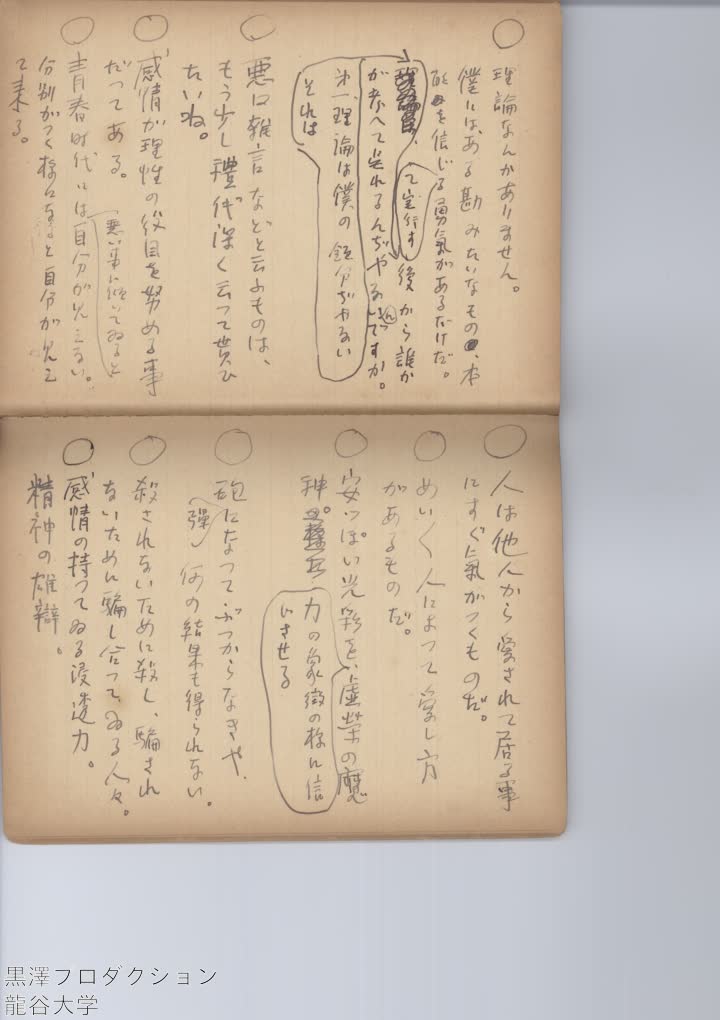 理論なんかありません。
僕には、ある勘みたいなもの、本
能を信じる勇氣があるだけだ。
て実行す
後から誰か
が考へて呉れるんぢやないですか。
ん
第一理論は僕の領分ぢやない
それは
悪口雑言などと云ふものは、
もう少し禮儀深く云つて貰ひ
たいね。
感情が理性の役目を努める事
だつてある。
「悪い事に傾いてゐると
青春時代には自分が見えない。
分別がつく様になると自分が見え
て来る。
人は他人から愛されて居る事
にすぐ氣がつくものだ。
めいく人によつて愛し方
があるものだ。
安つぽい光彩を、虚榮の魔
神。
力の象徴の様に信
じさせる
砲になつてぶつからなきや、
(彈)
何の結果も得られない。
殺されないために殺し、騙され
ないために騙し合つてゐる人々。
感情の持つてゐる浸透力。
精神の雄辯。
黒澤プロダクション
龍谷大学